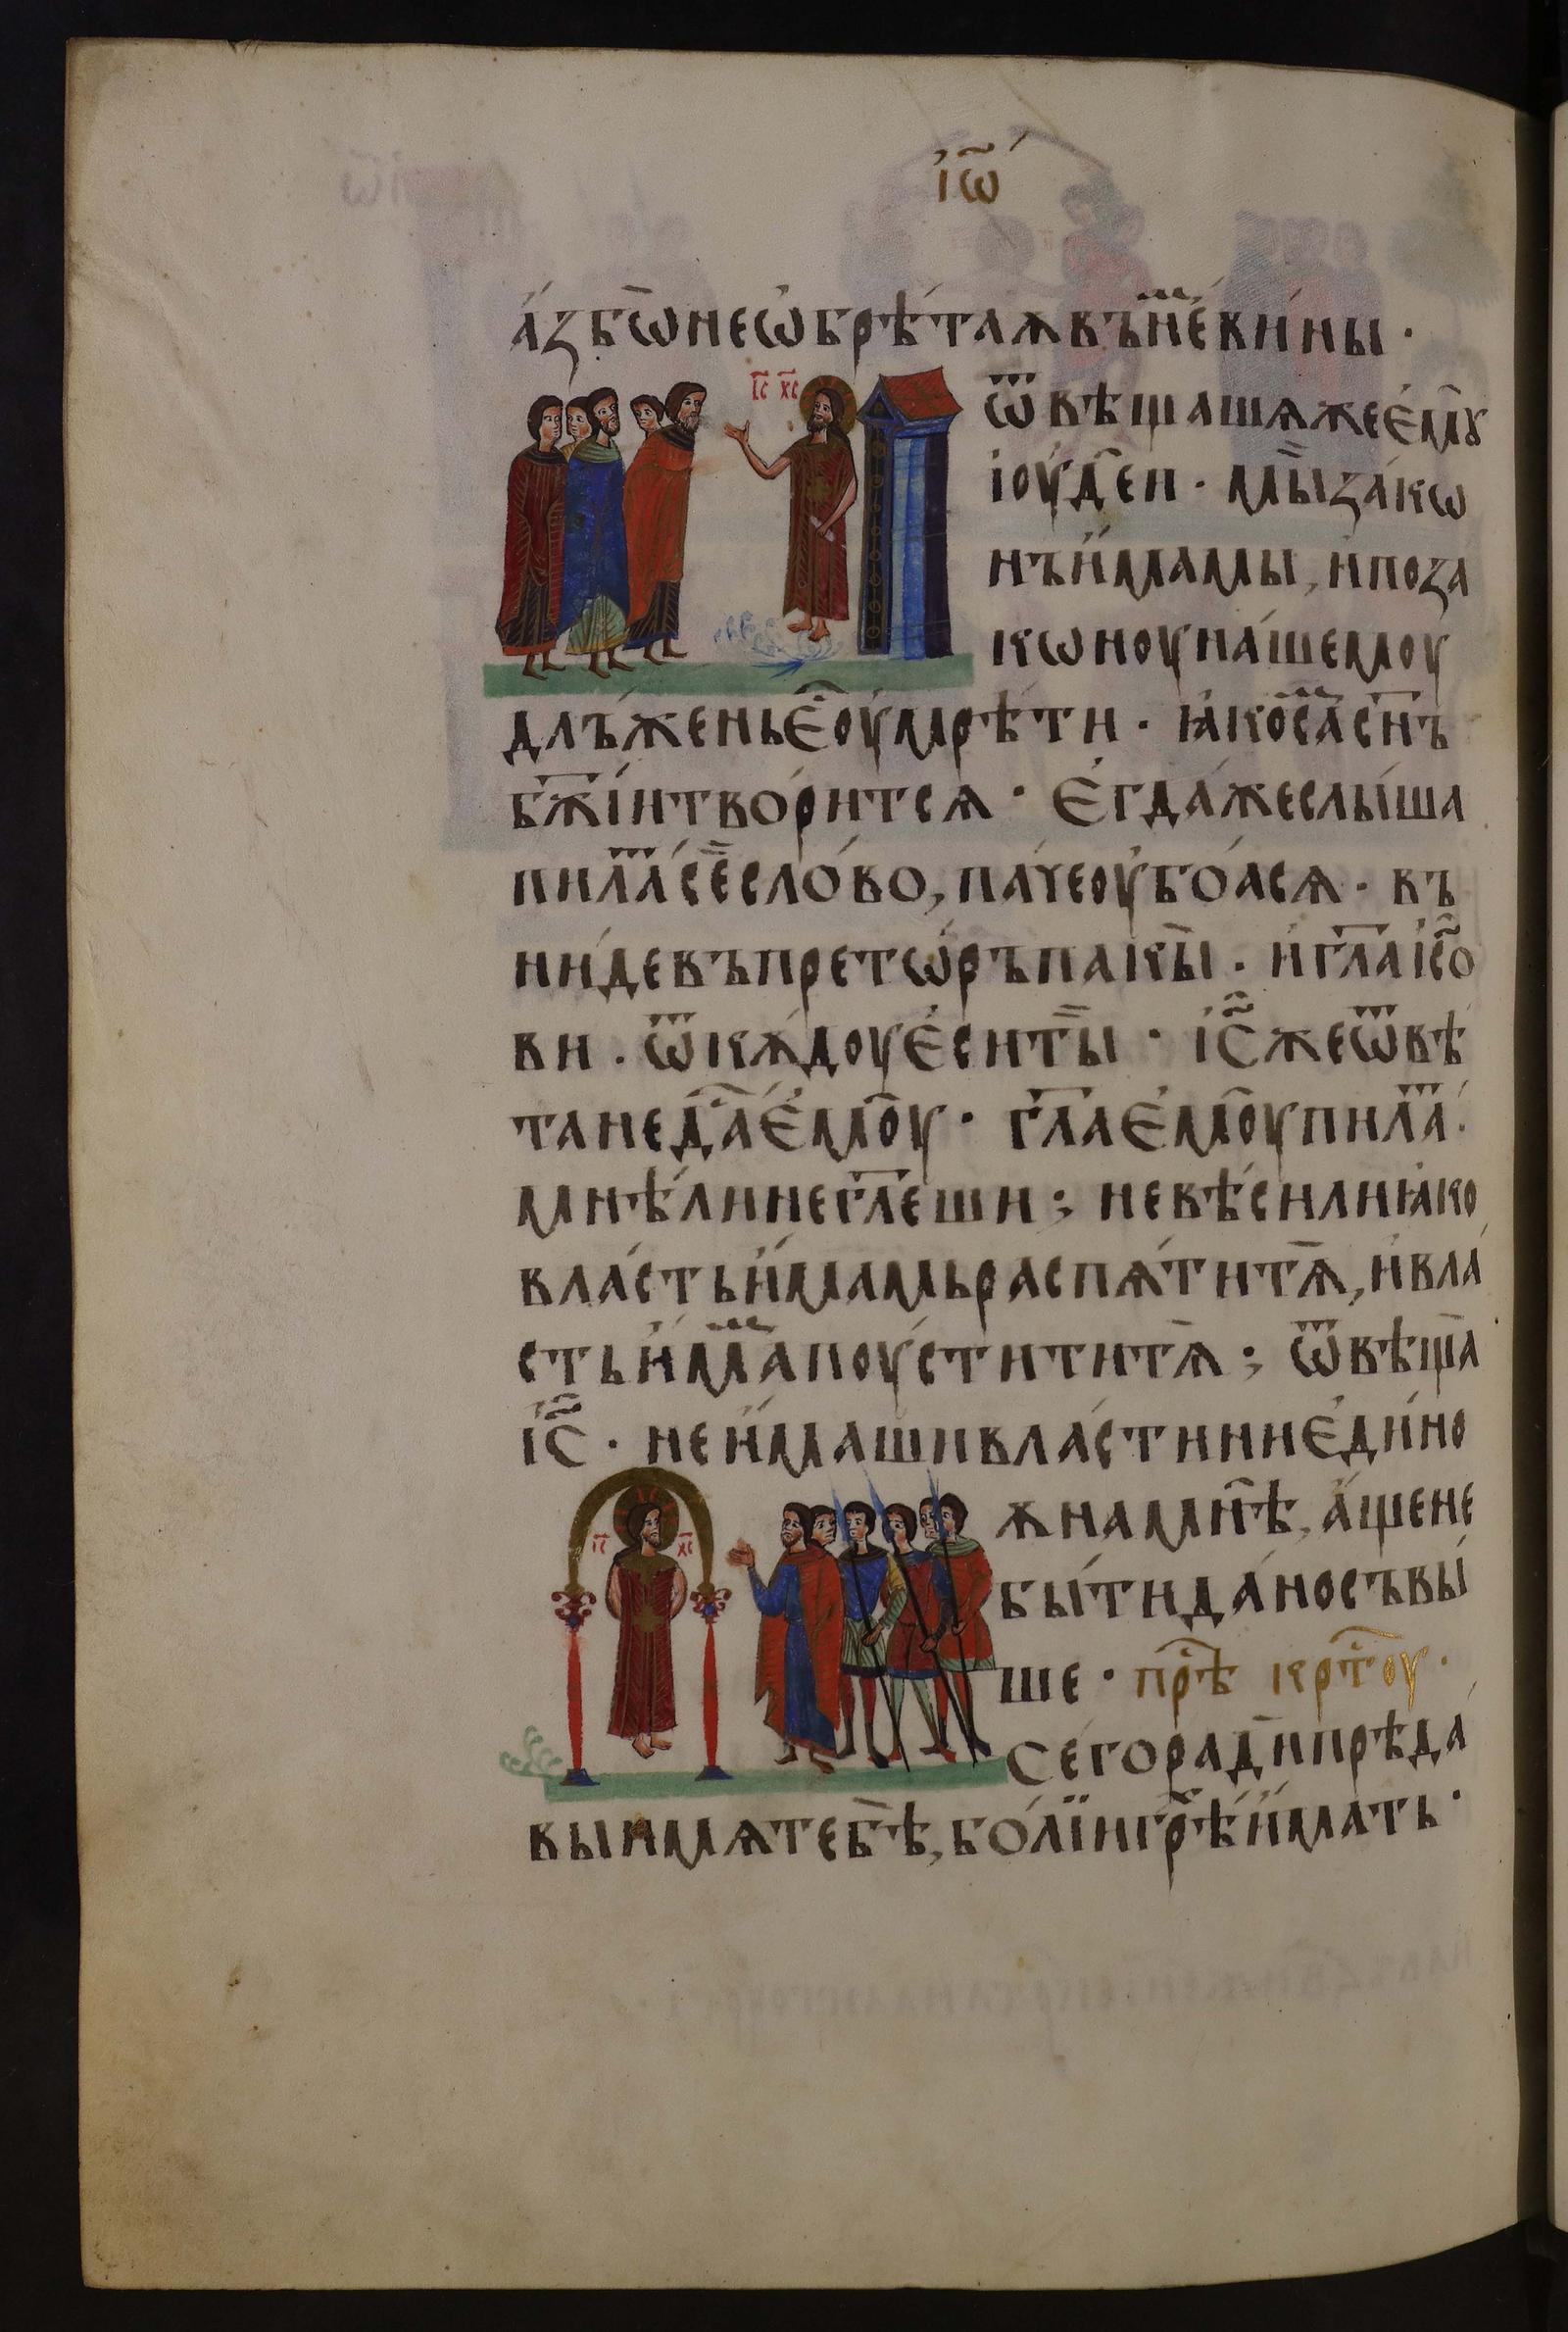 і҆ѡ҃
а҆́збѡ҃неѡ҆брѣ́таѫвъне҆́вины ·
ѿвѣщашѧжеє҆мꙋ̀
і҆оу҆де́и · мы̀зако
нъи҆́мамы, и҆поза
кѡноуна́шемоу
длъ́женьє҆̑оу҆мрѣ́ти · ꙗ҆́косас҃нъ
бж҃і́итво́ритсѧ · Є҆гда́жеслы́ша
пила́се̏сло́во, па́чеоу҆боа́сѧ · въ
ни́девъпретѡ́ръпакы̀ · и҆гл҃аі҆с҃о
ви . ѿкѫ́доує҆ситы̏ · і҆с҃жеѿвѣ
танеда̑є҆моу̑ · гл҃ает҆моу̑пила́ ·
мнѣ́линегл҃еши ; невѣ́силиꙗ҆ко
вла́стьи҆́мамьраспѧ́титѧ̀, и҆вла́
стьи҆́мапоу҆стититѧ̀ ; ѿвѣща̀
і҆с҃ · неи҆́машивла́стиниє҆ди́но
ѫнамнѣ̀, а҆́щене
бы́тида́носъвы́
ше · прѣ̑ крт̑оу ·
Сего́ради̏прѣда́
выимѧтебѣ̀, бо́лїигрѣ́и҆́мать ·
і҃с х҃с
і҃с х҃с